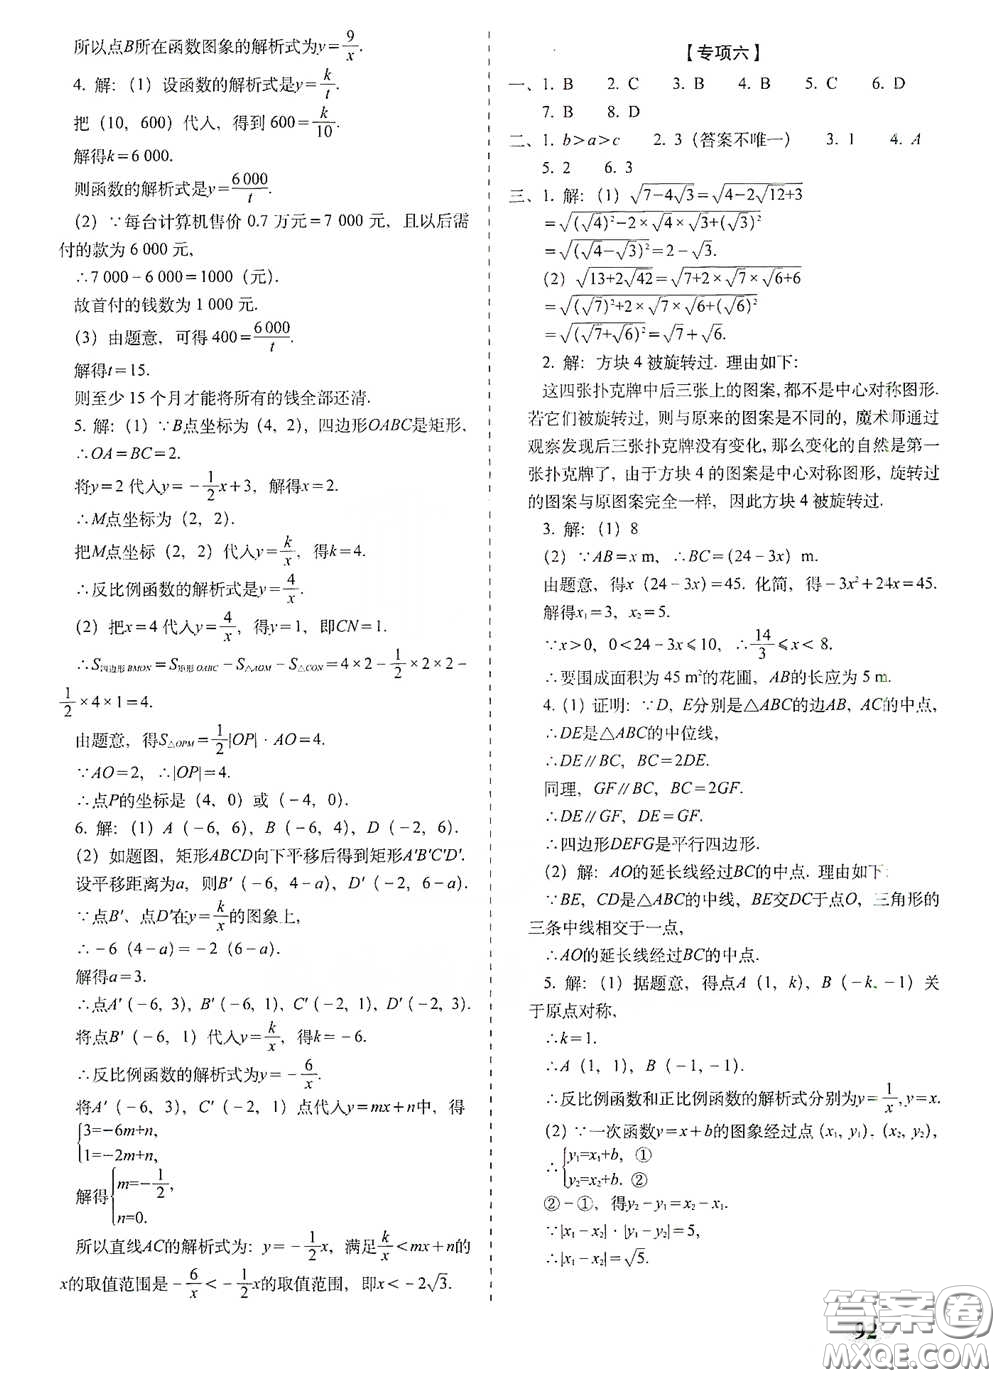 所以点B所在函数图象的解析式为y=9/x.
4. 解:(1) 设函数的解析式是y=k/t.
把(10, 600)代入, 得到 600=k/10.
解得k=6 000.
则函数的解析式是y=6 000/t.
(2) ∵每台计算机售价 0.7 万元=7 000 元, 且以后需
付的款为 6 000 元,
∴7 000-6 000=1000(元).
故首付的钱数为 1 000 元.
(3) 由题意, 可得 400=6 000/t.
解得t=15.
则至少 15 个月才能将所有的钱全部还清.
5. 解:(1) ∵B点坐标为(4, 2), 四边形OABC是矩形,
∴OA=BC=2.
将y=2 代入y=-1/2x+3, 解得x=2.
∴M点坐标为(2, 2).
把M点坐标(2, 2)代入y=k/x, 得k=4.
∴反比例函数的解析式是y=4/x.
(2) 把x=4 代入y=4/x, 得y=1, 即CN=1.
∴S四边形BMON=S矩形OABC-S△AOM-S△CON=4×2-1/2×2×2-
1/2×4×1=4.
由题意, 得S△OPM=1/2|OP|·AO=4.
∵AO=2, ∴|OP|=4.
∴点P的坐标是(4, 0)或(-4, 0).
6. 解:(1) A(-6, 6), B(-6, 4), D(-2, 6).
(2) 如题图, 矩形ABCD向下平移后得到矩形A′B′C′D′.
设平移距离为a, 则B′(-6, 4-a), D′(-2, 6-a).
∵点B′、点D′在y=k/x的图象上,
∴-6(4-a)=-2(6-a).
解得a=3.
∴点A′(-6, 3), B′(-6, 1), C′(-2, 1), D′(-2, 3).
将点B′(-6, 1)代入y=k/x, 得k=-6.
∴反比例函数的解析式为y=-6/x.
将A′(-6, 3), C′(-2, 1)点代入y=mx+n中, 得
{3=-6m+n,
1=-2m+n,
解得{m=-1/2,
n=0.
所以直线AC的解析式为: y=-1/2x, 满足k/x<mx+n的
x的取值范围是-6/x<-1/2x的取值范围, 即x<-2√3.
【专项六】
一、1. B 2. C 3. B 4. B 5. C 6. D
7. B 8. D
二、1. b>a>c 2. 3(答案不唯一) 3. 1 4. A
5. 2 6. 3
三、1. 解:(1) √(7-4√3)=√(4-2√12+3)
=√((√4)²-2×√4×√3+(√3)²)
=√((√4-√3)²)=2-√3.
(2) √(13+2√42)=√(7+2×√7×√6+6)
=√((√7)²+2×√7×√6+(√6)²)
=√((√7+√6)²)=√7+√6.
2. 解: 方块 4 被旋转过. 理由如下:
这四张扑克牌中后三张上的图案, 都不是中心对称图形.
若它们被旋转过, 则与原来的图案是不同的, 魔术师通过
观察发现后三张扑克牌没有变化, 那么变化的自然是第一
张扑克牌了, 由于方块 4 的图案是中心对称图形, 旋转过
的图案与原图案完全一样, 因此方块 4 被旋转过.
3. 解:(1) 8
(2) ∵AB=x m, ∴BC=(24-3x) m.
由题意, 得x(24-3x)=45. 化简, 得-3x²+24x=45.
解得x₁=3, x₂=5.
∵x>0, 0<24-3x⩽10, ∴14/3⩽x<8.
∴要围成面积为 45 m²的花圃, AB的长应为 5 m.
4. (1) 证明: ∵D, E分别是△ABC的边AB, AC的中点,
∴DE是△ABC的中位线,
∴DE∥BC, BC=2DE.
同理, GF∥BC, BC=2GF.
∴DE∥GF, DE=GF.
∴四边形DEFG是平行四边形.
(2) 解: AO的延长线经过BC的中点. 理由如下:
∵BE, CD是△ABC的中线, BE交DC于点O, 三角形的
三条中线相交于一点,
∴AO的延长线经过BC的中点.
5. 解:(1) 据题意, 得点A(1, k), B(-k, -1) 关
于原点对称,
∴k=1.
∴A(1, 1), B(-1, -1).
∴反比例函数和正比例函数的解析式分别为y=1/x, y=x.
(2) ∵一次函数y=x+b的图象经过点(x₁, y₁), (x₂, y₂),
∴{y₁=x₁+b, ①
y₂=x₂+b. ②
②-①, 得y₂-y₁=x₂-x₁.
∵|x₁-x₂|·|y₁-y₂|=5,
∴|x₁-x₂|=√5.
92
答案圈
MXQE.COM